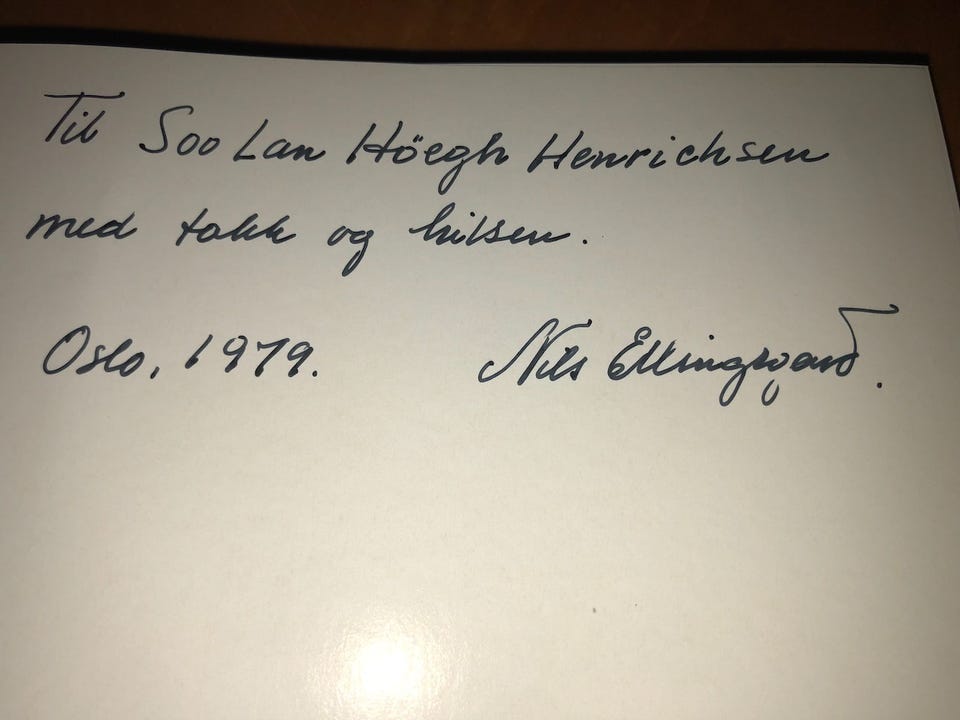 Til Soo Lan Höegh Henrichsen
med takk og hilsen.
Oslo, 1979. Nils Ellingsgard.